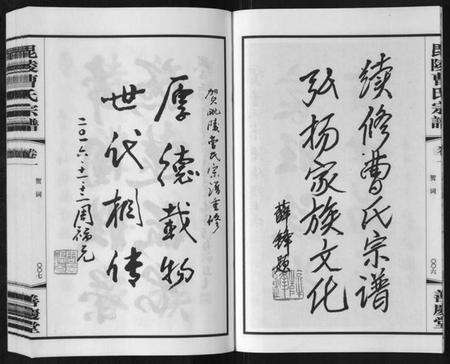 毘陵曹氏宗譜
卷一
賀詞
〇〇六
善慶堂
续修曹氏宗谱
弘扬家族文化
薛锋题
贺毗陵曹氏宗谱重修
厚德載物
世代相传
二〇一六·十二·三一周福元
毘陵曹氏宗譜
卷一
賀詞
〇〇七
善慶堂